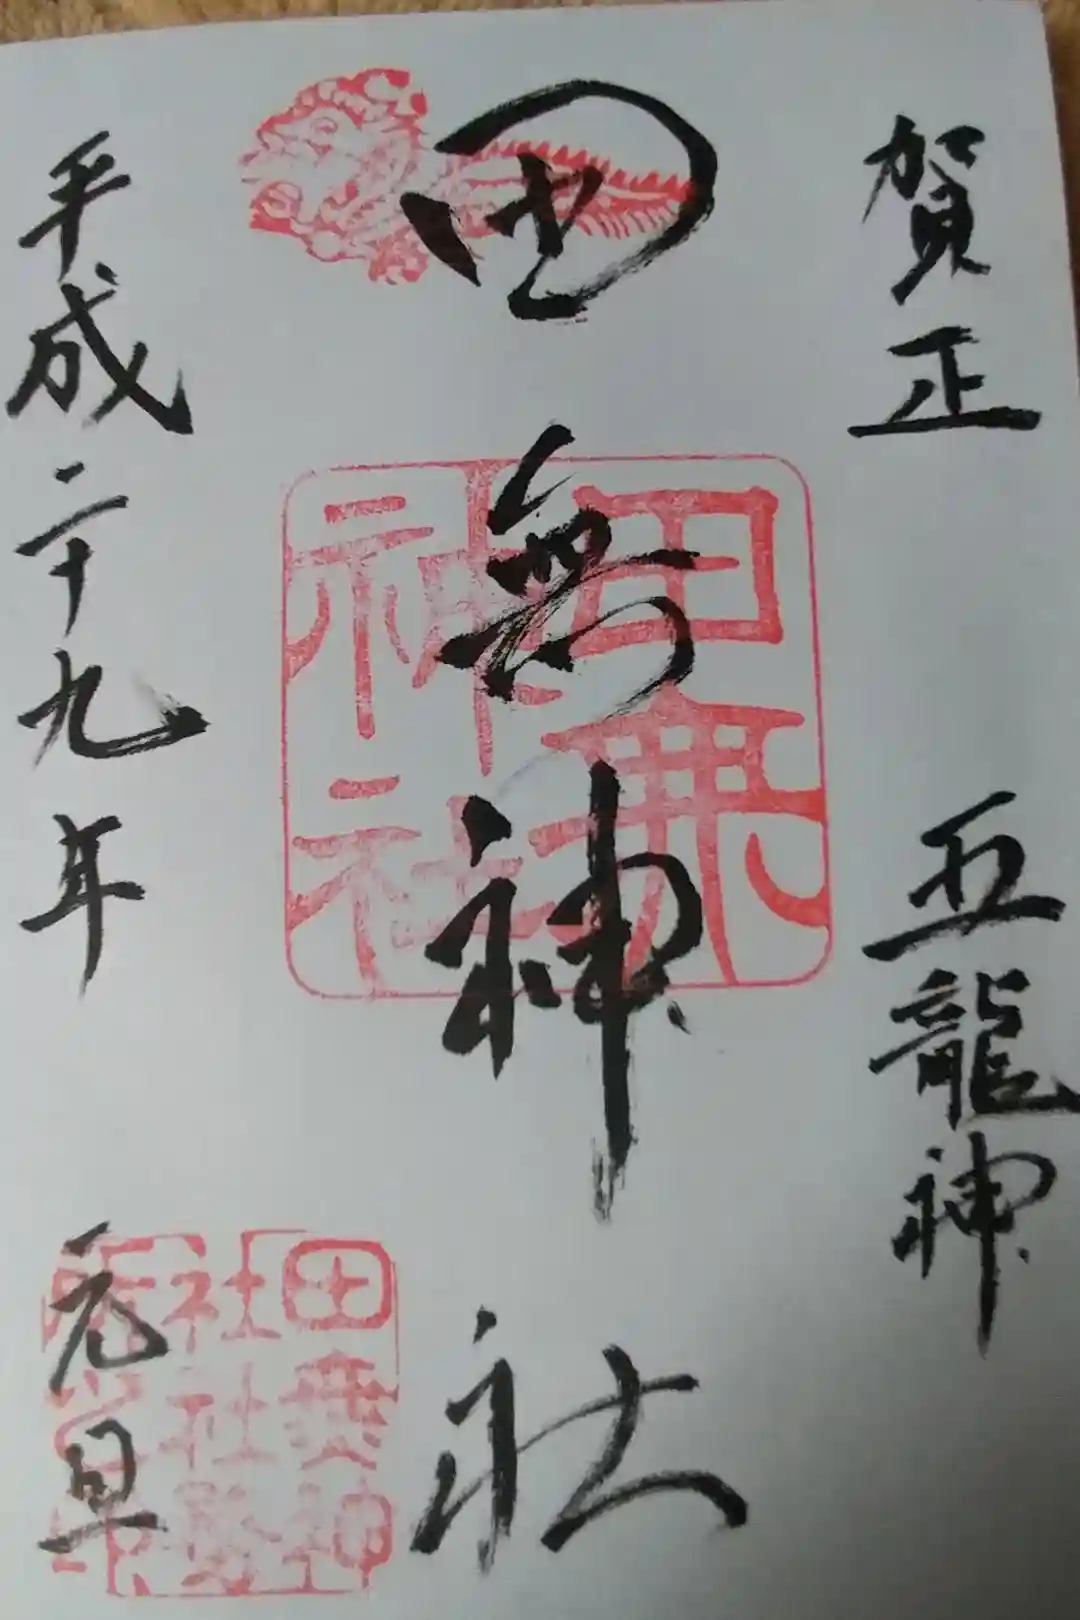 賀正
五龍神
田無神社
田無
神社
平成二十九年
元旦
田無神
社社務
所之印